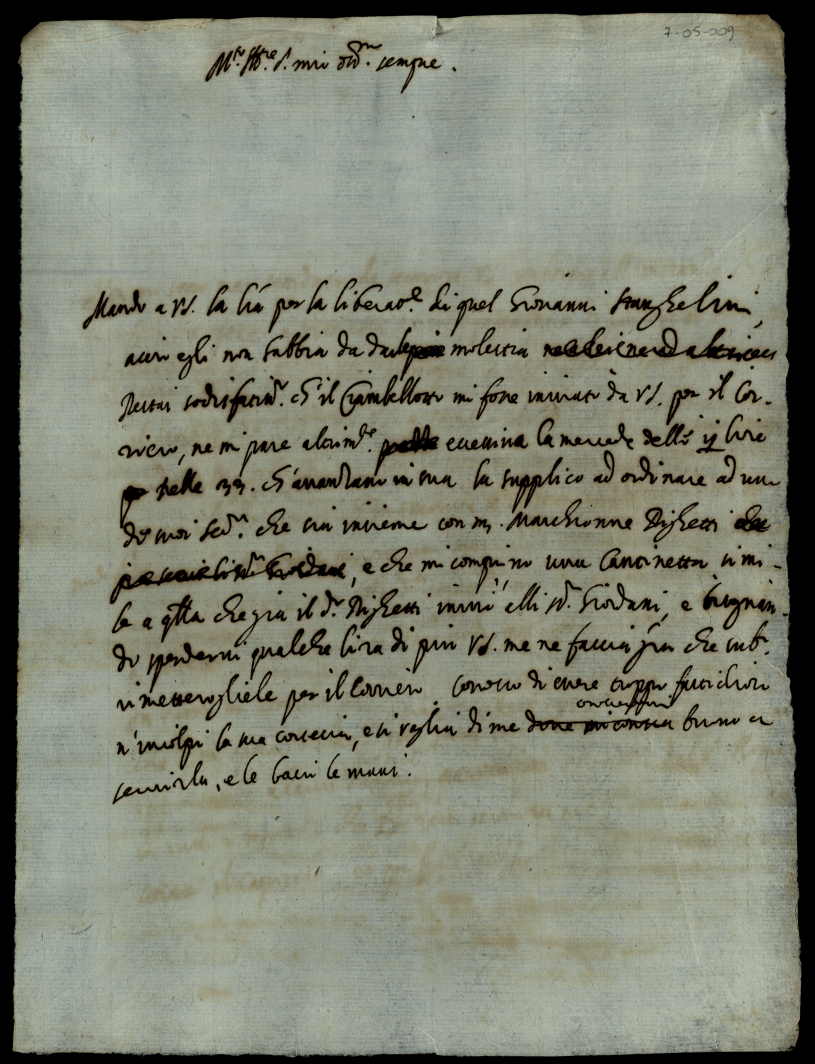 7-05-009
M.to Ill.re S. mio oss.mo sempre.
Mando a VS. la lr̃a per la liberat.e di quel Giovanni Stanghelini,
acciò egli non habbia da darle molestia
Restai sodisfatiss.o ch'il Ciambellotto mi fosse inviato da VS. per il Cor-
riero, ne mi pare altrim.te eccessiva la mercede delli ij lire
delle 33. ch'avanzano in sua la supplico ad ordinare ad uno
de suoi ser.ri che sia insieme con m. Marchionne Righetti
e che mi comprino una Cantinetta simi-
le a q̃lla che già il d.o Righetti inviò alli ss.ri Giordani, e bisognan-
do spendervi qualche lira di più VS. me ne faccia gr̃a che sub.o
rimetterogliele per il Corriero. Conosco di essere troppo fastidioso
n'incolpi la sua cortesia, e si vaglia di me dove mi conosca buono a
servirla, e le bacio le mani.